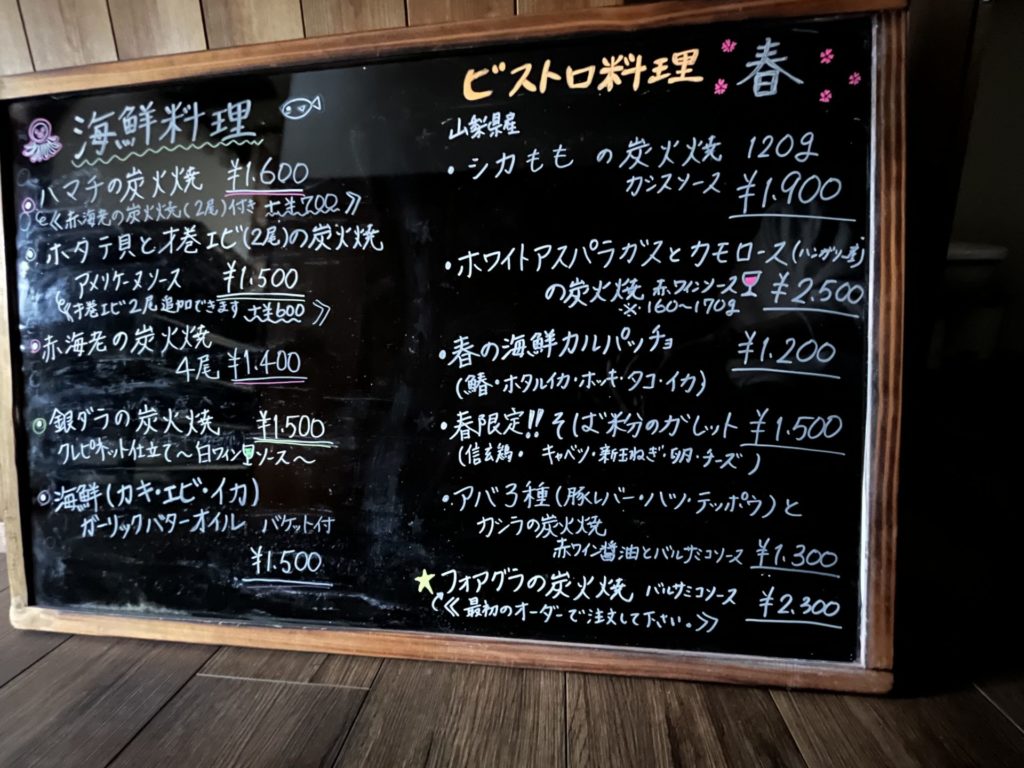 海鮮料理
ハマチの炭火焼 ¥1.600
《赤海老の炭火焼(2尾)付き +¥700》
ホタテ貝と才巻エビ(2尾)の炭火焼
アメリケーヌソース ¥1.500
《才巻エビ2尾追加できます +¥600》
赤海老の炭火焼
4尾 ¥1.400
銀ダラの炭火焼 ¥1.500
クレピネット仕立て〜白ワインソース〜
海鮮(カキ・エビ・イカ)
ガーリックバターオイル バケット付
¥1.500
ビストロ料理 春
山梨県産
・シカももの炭火焼 120g
カシスソース ¥1.900
・ホワイトアスパラガスとカモロース(ハンガリー産)
の炭火焼 赤ワインソース ¥2.500
※160〜170g
・春の海鮮カルパッチョ ¥1.200
(鰆・ホタルイカ・ホッキ・タコ・イカ)
・春限定!!そば粉のガレット ¥1.500
(信玄鶏・キャベツ・新玉ねぎ・卵・チーズ)
・アバ3種(豚レバー・ハツ・テッポウ)と
カシラの炭火焼
赤ワイン醤油とバルサミコソース ¥1.300
★フォアグラの炭火焼 バルサミコソース ¥2.300
《最初のオーダーで注文して下さい。》